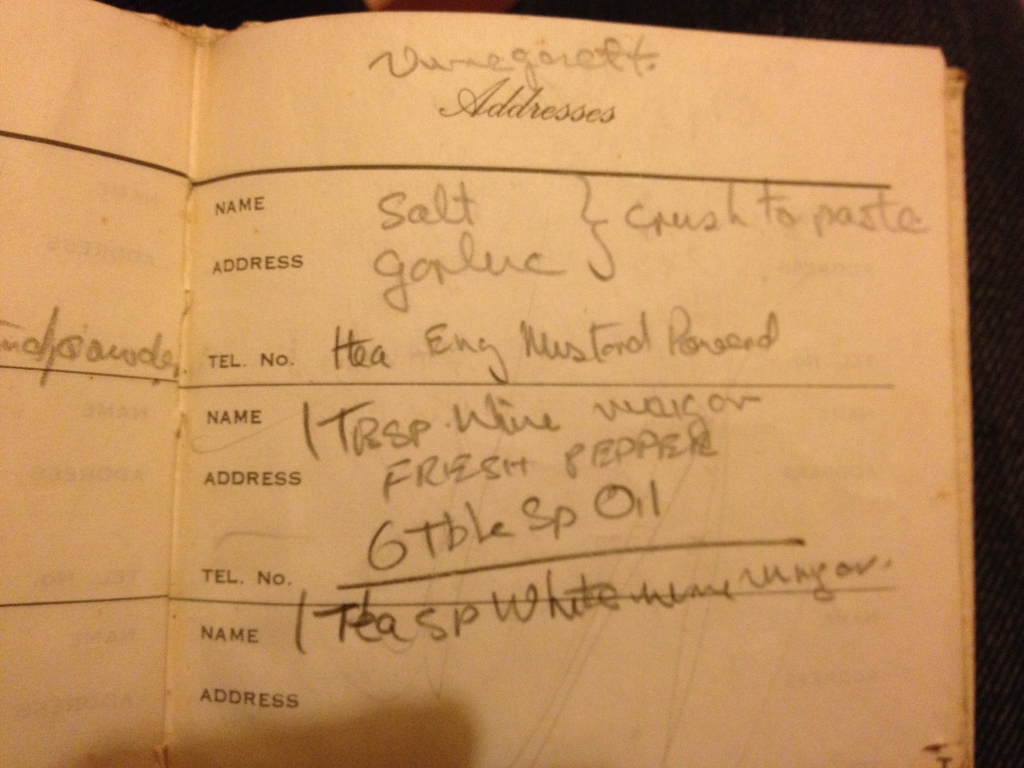 Vinegarett.
Addresses
NAME Salt } crush to paste
ADDRESS garluc
TEL. No. Eng Mustard
NAME 1 TBSP. Wine
ADDRESS FRESH PEPPER
6 Tble Sp Oil
TEL. No.
NAME 1 Tea SP White wine
ADDRESS